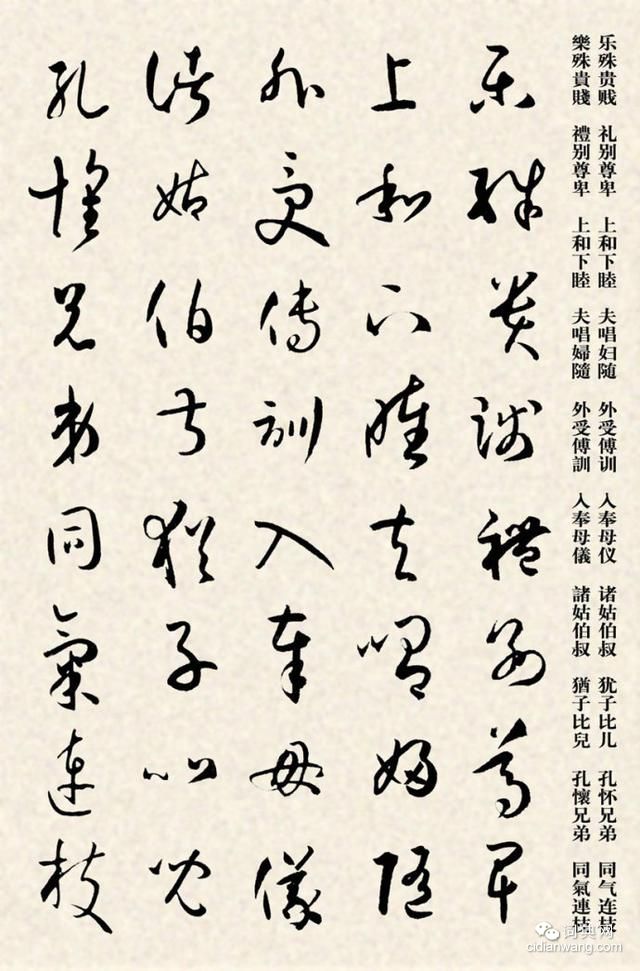 乐殊贵贱 礼别尊卑 上和下睦 夫唱妇随 外受傅训 入奉母仪 诸姑伯叔 犹子比儿 孔怀兄弟 同气连枝
樂殊貴賤 禮別尊卑 上和下睦 夫唱婦隨 外受傅訓 入奉母儀 諸姑伯叔 猶子比兒 孔懷兄弟 同氣連枝
樂殊貴賤禮別尊卑
上和下睦夫唱婦隨
外受傅訓入奉母儀
諸姑伯叔猶子比兒
孔懷兄弟同氣連枝
词典网
cidianwang.com